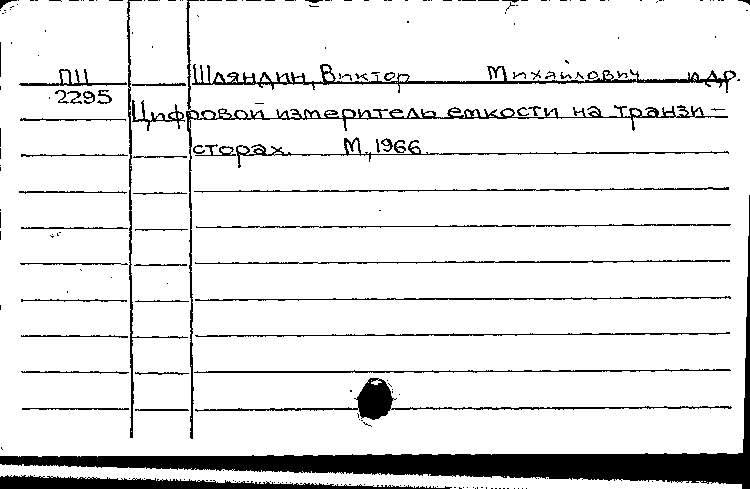 П11 Шляндин, Виктор Михайлович и др.
2295
Цифровой измеритель емкости на транзи-
сторах. М., 1966.